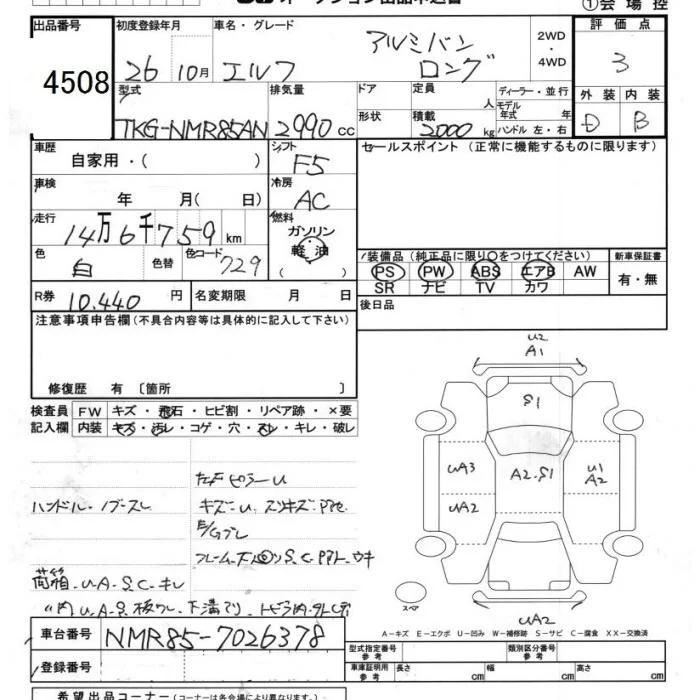 オークション出品申込書
①会場控
出品番号 初度登録年月 車名・グレード 評価点
4508 26 10月 エルフ アルミバン ロング 2WD・4WD 3
型式 排気量 ドア 定員 人 ディーラー・並行 外装 内装
TKG-NMR85AN 2990cc 形状 積載 2000kg モデル年式 年 ハンドル 左・右 D B
車歴 シフト セールスポイント (正常に機能するものに限ります)
自家用・( ) F5
車検 年 月(日) 冷房 AC
走行 14万6千759km 燃料 ガソリン 軽油
色 白 色替 色コード 729
装備品 (純正品に限り○をつけてください) 新車保証書
PS PW ABS エアB AW 有・無
SR ナビ TV カワ
R券 10,440円 名変期限 月 日 後日品
注意事項申告欄 (不具合内容等は具体的に記入して下さい)
修復歴 有 〔箇所 〕
検査員 FW キズ・飛石・ヒビ割・リペア跡・×要
記入欄 内装 キズ・汚レ・コゲ・穴・スレ・キレ・破レ
左FピラーU
ハンドル・ノブスレ
キズ・U
フレーム・下廻りS.C
荷箱・U.A.S.C・キレ
〃内U.A.S
U2
A1
S1
UA3 A2.S1 U1
A2
UA2
スペア
UA2
A-キズ E-エクボ U-凹み W-補修跡 S-サビ C-腐食 XX-交換済
車台番号 NMR85-7026378
登録番号
型式指定番号 参考 類別区分番号 参考
車庫証明用 参考 長さ cm 幅 cm 高さ cm
希望出品コーナー (コーナーは各会場により異なります)